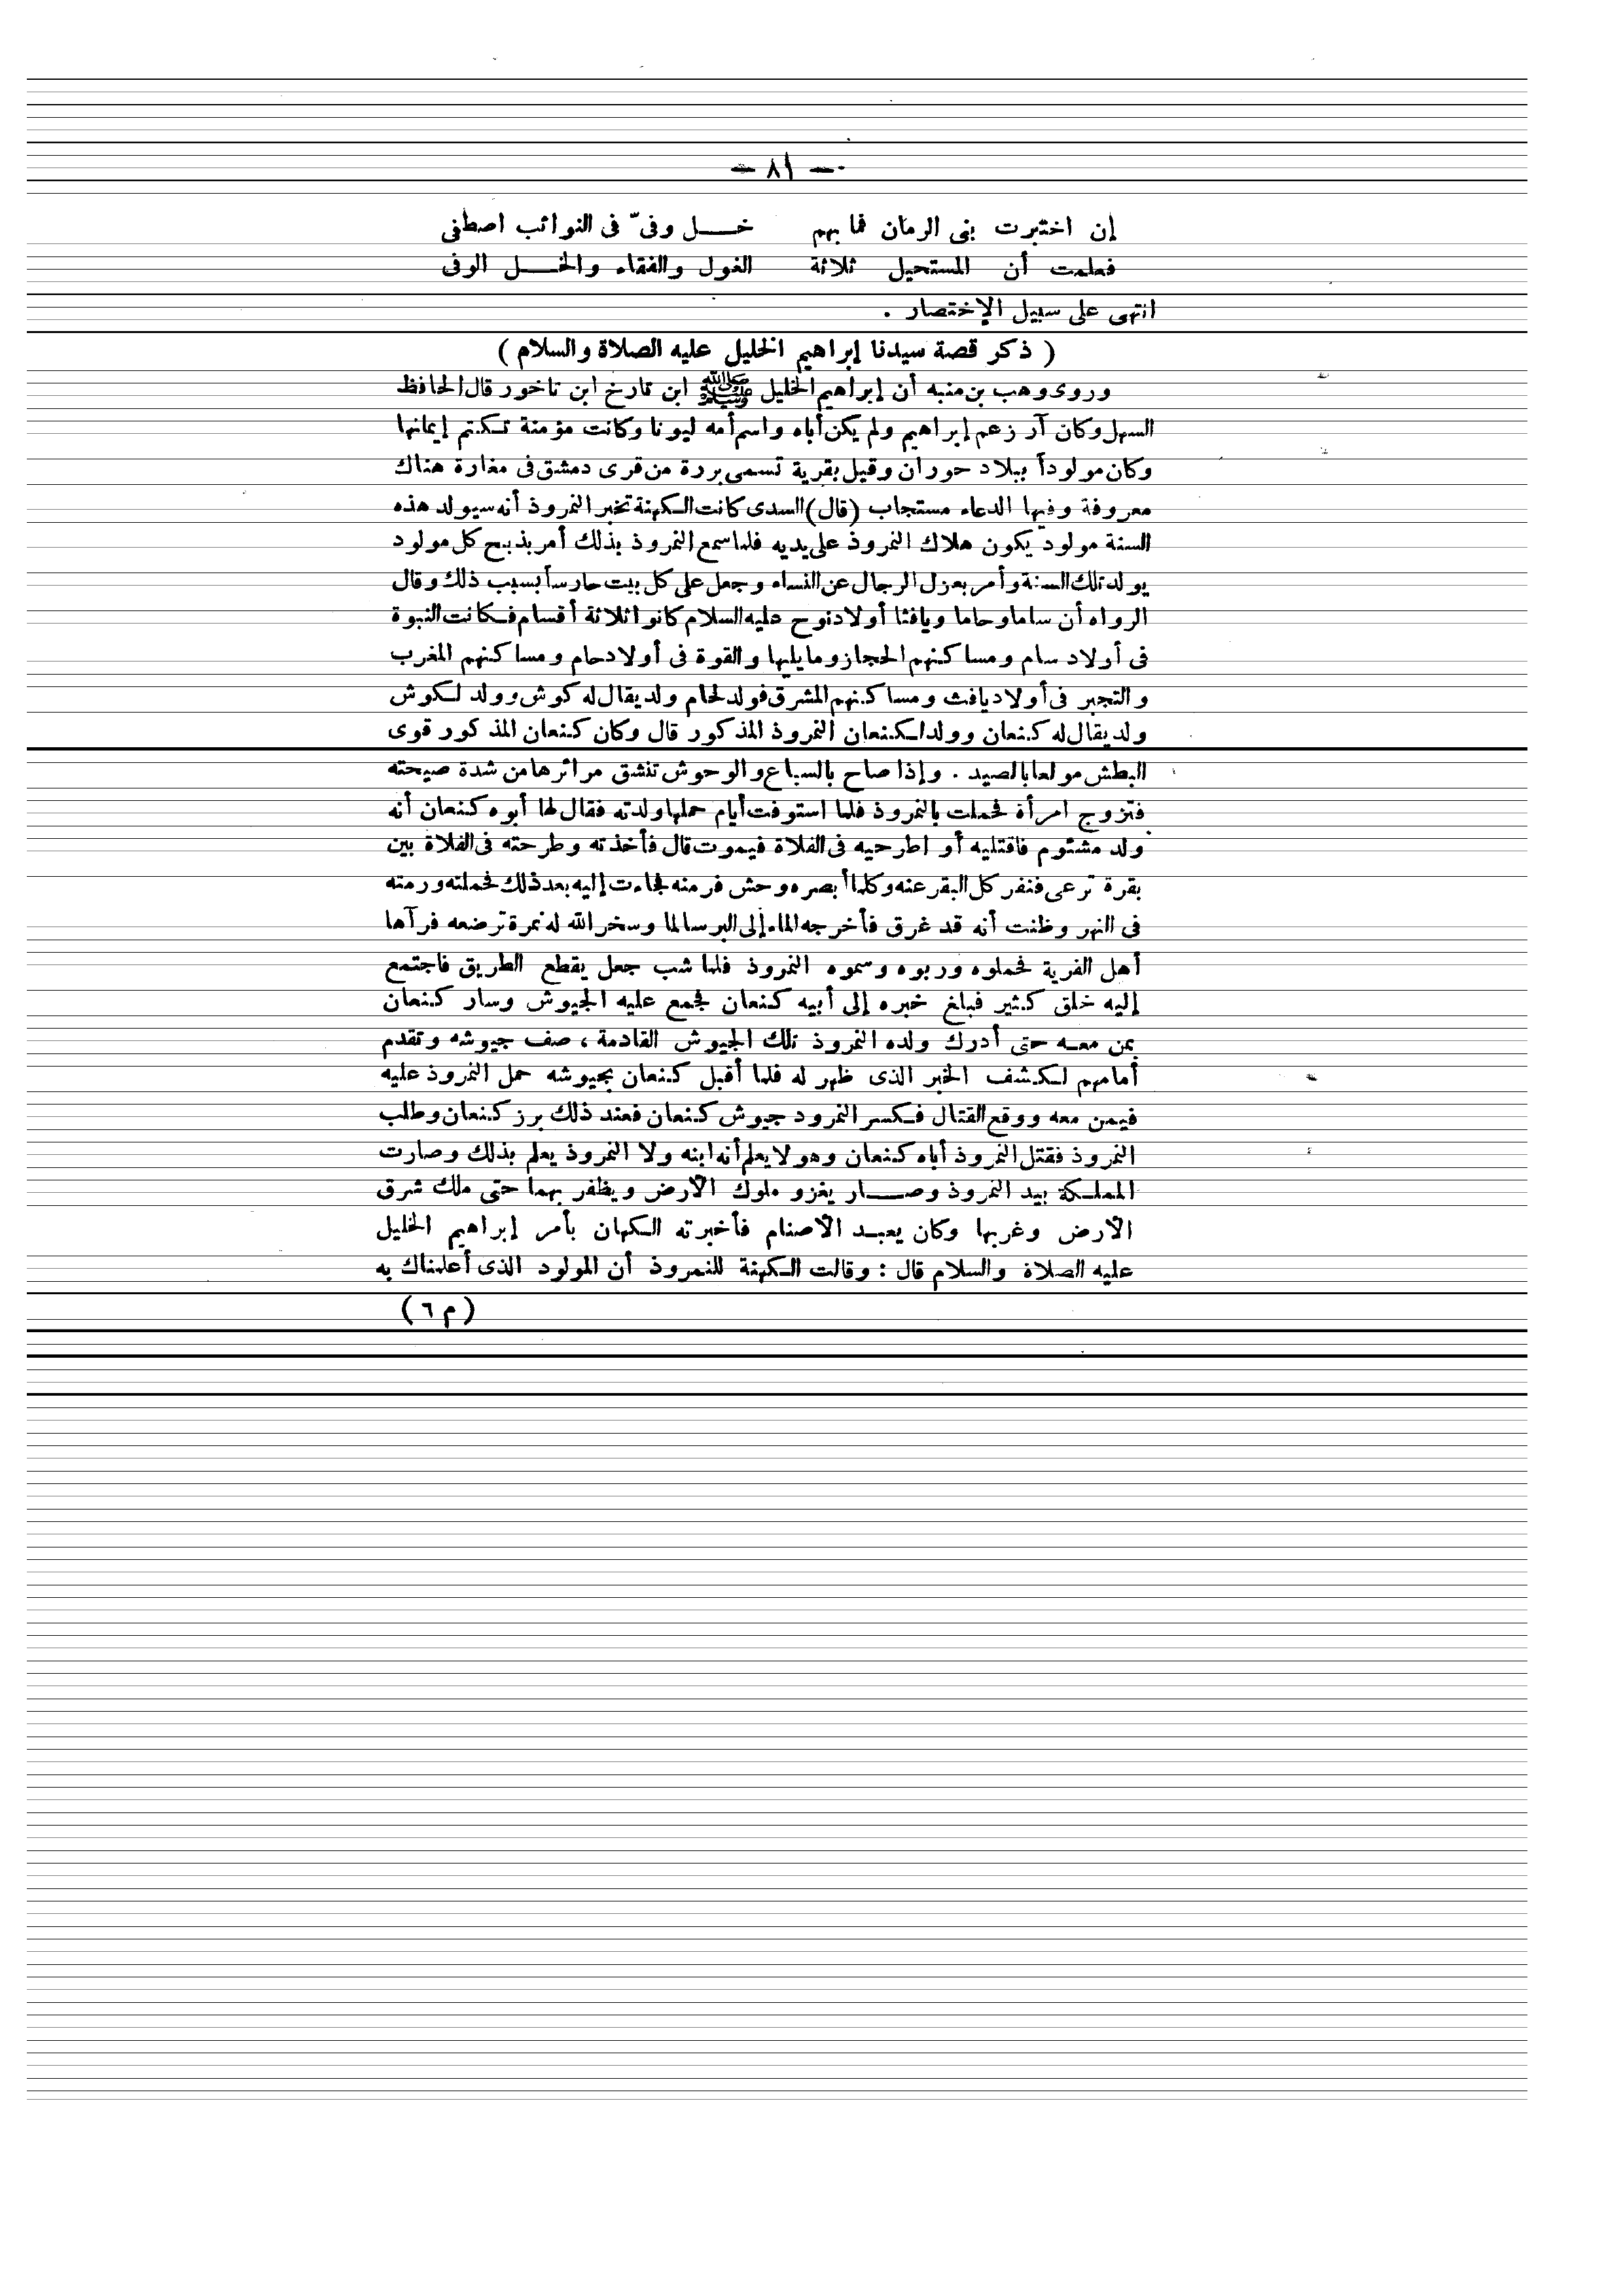 — ٨١ —
إن اختبرت بنى الزمان فما بهم خــــل وفىّ فى النوائب اصطفى
فعلمت أن المستحيل ثلاثة الغول والفقاء والخــــل الوفى
انتهى على سبيل الإختصار .
( ذكر قصة سيدنا إبراهيم الخليل عليه الصلاة والسلام )
وروى وهب بن منبه أن إبراهيم الخليل ﷺ ابن تارخ ابن تاخور قال الحافظ
السهل وكان آر زعم إبراهيم ولم يكن أباه واسم أمه ليونا وكانت مؤمنة تكتم إيمانها
وكان مولوداً ببلاد حوران وقيل بقرية تسمى بررة من قرى دمشق فى مغارة هناك
معروفة وفيها الدعاء مستجاب (قال) السدى كانت الكهنة تخبر النمروذ أنه سيولد هذه
السنة مولود يكون هلاك النمروذ على يديه فلما سمع النمروذ بذلك أمر بذبح كل مولود
يولد تلك السنة وأمر بعزل الرجال عن النساء وجعل على كل بيت حارساً بسبب ذلك وقال
الرواه أن ساما وحاما ويافثا أولاد نوح عليه السلام كانوا ثلاثة أقسام فكانت النبوة
فى أولاد سام ومساكنهم الحجاز وما يليها والقوة فى أولاد حام ومساكنهم المغرب
والتجبر فى أولاد يافث ومساكنهم المشرق فولد لحام ولد يقال له كوش وولد لكوش
ولد يقال له كنعان وولد لكنعان النمروذ المذكور قال وكان كنعان المذكور قوى
البطش مولعا بالصيد . وإذا صاح بالسباع والوحوش تنشق مرائرها من شدة صيحته
فتزوج امرأة فحملت بالنمروذ فلما استوفت أيام حملها ولدته فقال لها أبوه كنعان أنه
ولد مشئوم فاقتليه أو اطرحيه فى الفلاة فيموت قال فأخذته وطرحته فى الفلاة بين
بقرة ترعى فنفر كل البقر عنه وكلما أبصره وحش فر منه فجاءت إليه بعد ذلك فحملته ورمته
فى النهر وظنت أنه قد غرق فأخرجه الماء إلى البر سالما وسخر الله له نمرة ترضعه فرآها
أهل القرية فحملوه وربوه وسموه النمروذ فلما شب جعل يقطع الطريق فاجتمع
إليه خلق كثير فبلغ خبره إلى أبيه كنعان فجمع عليه الجيوش وسار كنعان
بمن معه حتى أدرك ولده النمروذ تلك الجيوش القادمة ، صف جيوشه وتقدم
أمامهم لكشف الخبر الذى ظهر له فلما أقبل كنعان بجيوشه حمل النمروذ عليه
فيمن معه ووقع القتال فكسر النمرود جيوش كنعان فعند ذلك برز كنعان وطلب
النمروذ فقتل النمروذ أباه كنعان وهو لا يعلم أنه ابنه ولا النمروذ يعلم بذلك وصارت
المملكة بيد النمروذ وصــــار يغزو ملوك الأرض ويظفر بهما حتى ملك شرق
الأرض وغربها وكان يعبد الأصنام فأخبرته الكهان بأمر إبراهيم الخليل
عليه الصلاة والسلام قال : وقالت الكهنة للنمروذ أن المولود الذى أعلمناك به
( م ٦ )